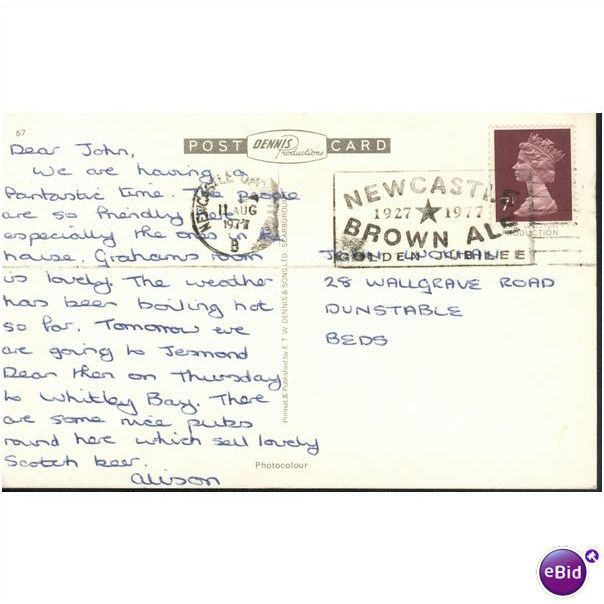 67
POST DENNIS Productions CARD
Dear John,
We are having a
fantastic time. The people
are so friendly
especially the ones in
house. Grahams room
is lovely. The weather
has been boiling hot
so far. Tomorrow we
are going to Jesmond
Dear then on Thursday
to Whitley Bay. There
are some nice pubs
round here which sell lovely
Scotch beer.
Alison
NEWCASTLE
11 AUG
1977
B
NEWCASTLE
1927 ★ 1977
BROWN ALE
GOLDEN JUBILEE
28 WALLGRAVE ROAD
DUNSTABLE
BEDS
Printed & Published by E. T. W. DENNIS & SONS LTD. SCARBOROUGH
Photocolour
eBid